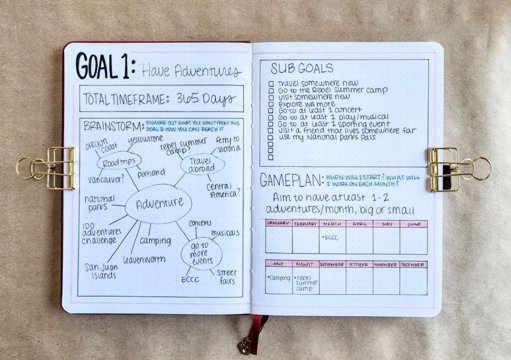 GOAL 1: Have Adventures
TOTAL TIMEFRAME: 365 Days
BRAINSTORM: FIGURE OUT WHAT YOU WANT FROM THIS
GOAL & HOW YOU CAN REACH IT
oregon coast
yellowstone
rebel summer camp?
ferry to victoria
Road trips
Travel abroad
vancouver?
portland
Central America?
national parks
Adventure
100 adventures challenge
concerts
musicals
Camping
go to more events
San Juan Islands
Leavenworth
ECCC
Street fairs
SUB GOALS
Travel somewhere new
Go to the Rebel Summer Camp
Visit somewhere new
Explore WA more
Go to at least 1 concert
Go to at least 1 play/musical
Go to at least 1 sporting event
Visit a friend that lives somewhere far
use my National Parks Pass
GAMEPLAN: WHEN WILL I START? WHAT WILL
I WORK ON EACH MONTH?
Aim to have at least 1-2
adventures/month, big or small
JANUARY FEBRUARY MARCH APRIL MAY JUNE
•ECCC
JULY AUGUST SEPTEMBER OCTOBER NOVEMBER DECEMBER
•Camping •rebel
summer
camp